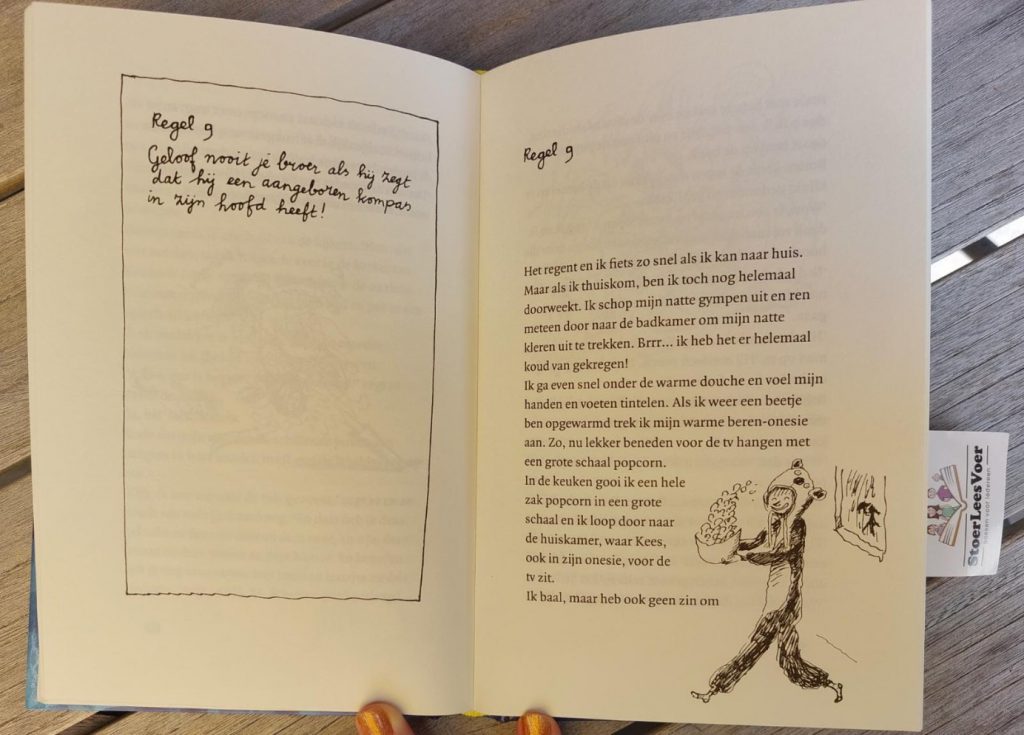 Regel 9
Geloof nooit je broer als hij zegt
dat hij een aangeboren kompas
in zijn hoofd heeft!
Regel 9
Het regent en ik fiets zo snel als ik kan naar huis.
Maar als ik thuiskom, ben ik toch nog helemaal
doorweekt. Ik schop mijn natte gympen uit en ren
meteen door naar de badkamer om mijn natte
kleren uit te trekken. Brrr... ik heb het er helemaal
koud van gekregen!
Ik ga even snel onder de warme douche en voel mijn
handen en voeten tintelen. Als ik weer een beetje
ben opgewarmd trek ik mijn warme beren-onesie
aan. Zo, nu lekker beneden voor de tv hangen met
een grote schaal popcorn.
In de keuken gooi ik een hele
zak popcorn in een grote
schaal en ik loop door naar
de huiskamer, waar Kees,
ook in zijn onesie, voor de
tv zit.
Ik baal, maar heb ook geen zin om
StoerLeesVoer
boeken voor iedereen